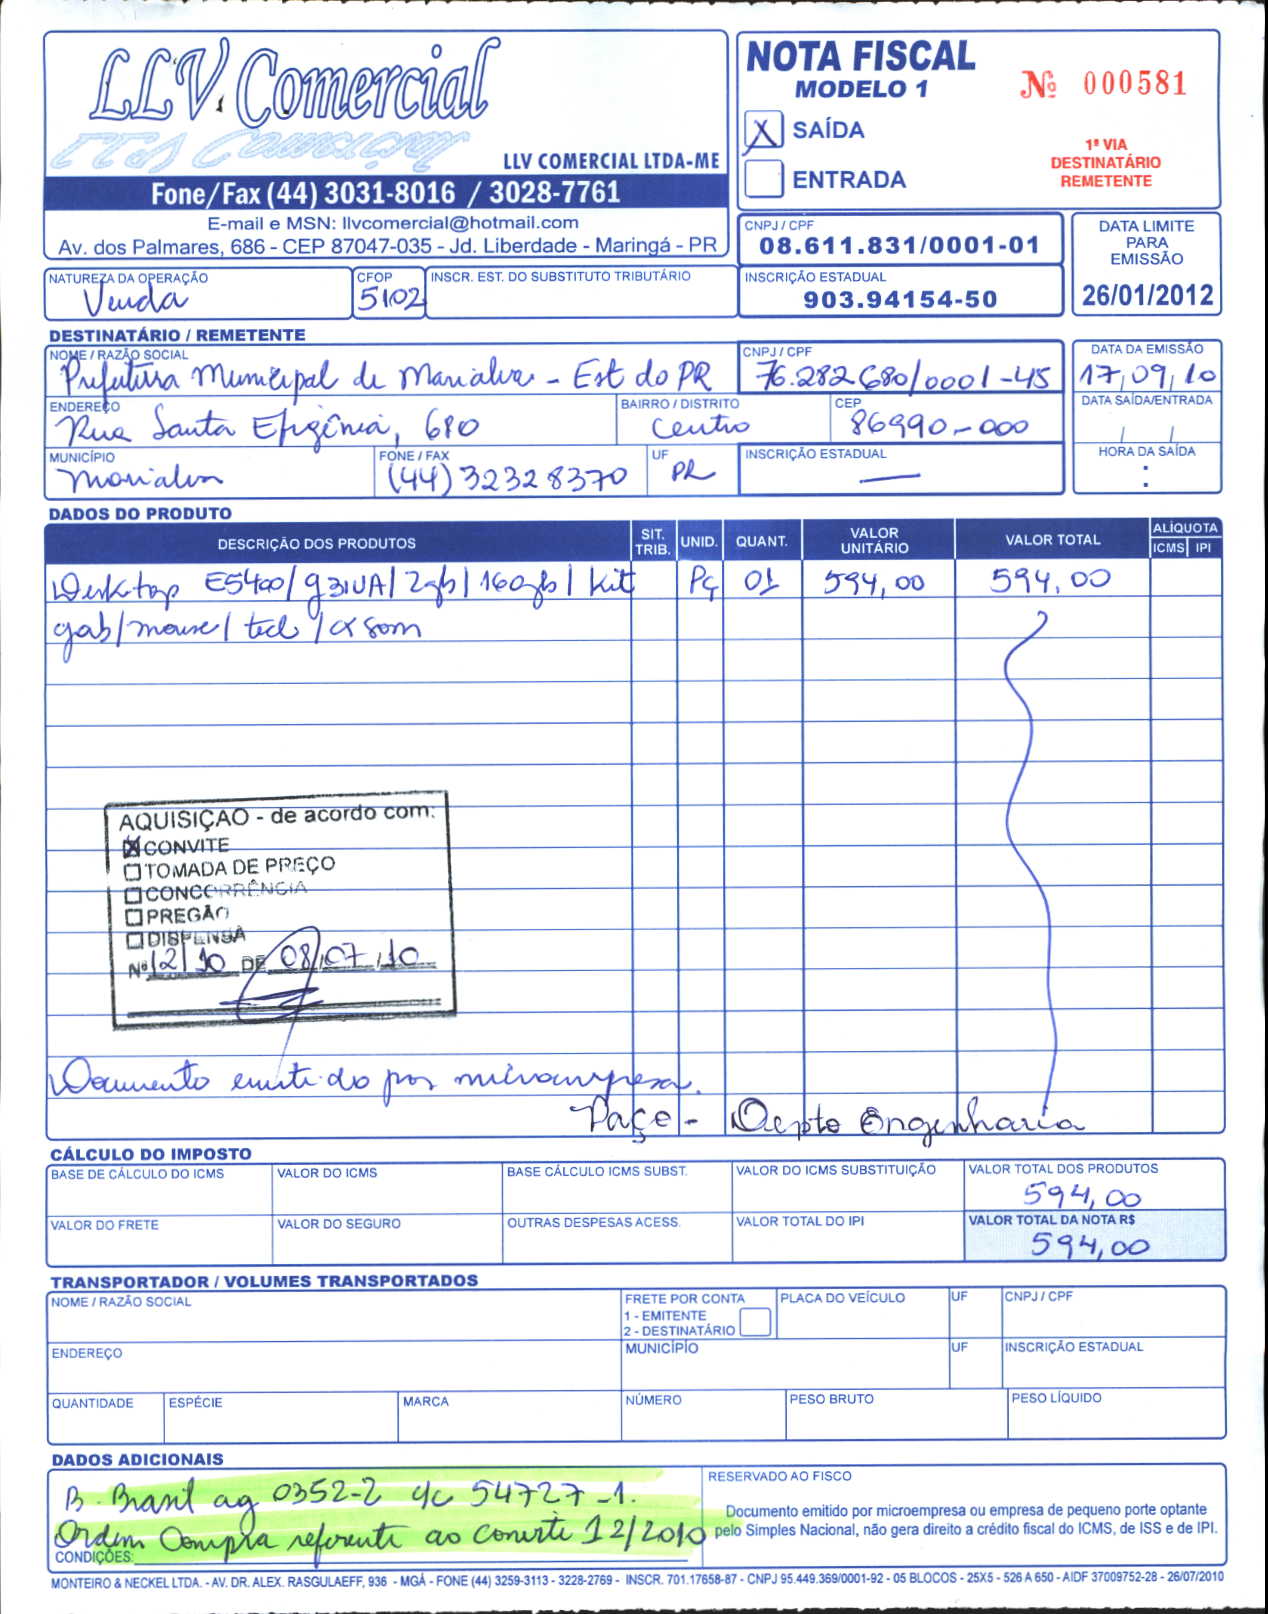 LLV Comercial
LLV COMERCIAL LTDA-ME
Fone/Fax (44) 3031-8016 / 3028-7761
E-mail e MSN: llvcomercial@hotmail.com
Av. dos Palmares, 686 - CEP 87047-035 - Jd. Liberdade - Maringá - PR
NOTA FISCAL
MODELO 1
Nº 000581
X SAÍDA
ENTRADA
1ª VIA
DESTINATÁRIO
REMETENTE
CNPJ / CPF
08.611.831/0001-01
INSCRIÇÃO ESTADUAL
903.94154-50
DATA LIMITE
PARA
EMISSÃO
26/01/2012
NATUREZA DA OPERAÇÃO
Venda
CFOP
5102
INSCR. EST. DO SUBSTITUTO TRIBUTÁRIO
DESTINATÁRIO / REMETENTE
NOME / RAZÃO SOCIAL
Prefeitura Municipal de Marialva - Est do PR
CNPJ / CPF
76.282680/0001-45
DATA DA EMISSÃO
17,09,10
ENDEREÇO
Rua Santa Efigênia, 680
BAIRRO / DISTRITO
Centro
CEP
86990-000
DATA SAÍDA/ENTRADA
/ /
MUNICÍPIO
Marialva
FONE / FAX
(44) 32328370
UF
PR
INSCRIÇÃO ESTADUAL
—
HORA DA SAÍDA
:
DADOS DO PRODUTO
DESCRIÇÃO DOS PRODUTOS SIT. TRIB. UNID. QUANT. VALOR UNITÁRIO VALOR TOTAL ALÍQUOTA ICMS IPI
Desktop E5400/g31VA/2gb/160gb/kit Pç 01 594,00 594,00
gab/mouse/tecl/cx som
AQUISIÇÃO - de acordo com:
X CONVITE
TOMADA DE PREÇO
CONCORRÊNCIA
PREGÃO
DISPENSA
Nº 12/10 DE 08/07/10
Documento emitido por microempresa.
Paço - Depto Engenharia
CÁLCULO DO IMPOSTO
BASE DE CÁLCULO DO ICMS
VALOR DO ICMS
BASE CÁLCULO ICMS SUBST.
VALOR DO ICMS SUBSTITUIÇÃO
VALOR TOTAL DOS PRODUTOS
594,00
VALOR DO FRETE
VALOR DO SEGURO
OUTRAS DESPESAS ACESS.
VALOR TOTAL DO IPI
VALOR TOTAL DA NOTA R$
594,00
TRANSPORTADOR / VOLUMES TRANSPORTADOS
NOME / RAZÃO SOCIAL
FRETE POR CONTA
1 - EMITENTE
2 - DESTINATÁRIO
PLACA DO VEÍCULO
UF
CNPJ / CPF
ENDEREÇO
MUNICÍPIO
UF
INSCRIÇÃO ESTADUAL
QUANTIDADE
ESPÉCIE
MARCA
NÚMERO
PESO BRUTO
PESO LÍQUIDO
DADOS ADICIONAIS
B. Brasil ag 0352-2 c/c 54727-1.
Ordem Compra referente ao convite 12/2010
CONDIÇÕES:
RESERVADO AO FISCO
Documento emitido por microempresa ou empresa de pequeno porte optante
pelo Simples Nacional, não gera direito a crédito fiscal do ICMS, de ISS e de IPI.
MONTEIRO & NECKEL LTDA. - AV. DR. ALEX. RASGULAEFF, 936 - MGÁ - FONE (44) 3259-3113 - 3228-2769 - INSCR. 701.17658-87 - CNPJ 95.449.369/0001-92 - 05 BLOCOS - 25X5 - 526 A 650 - AIDF 37009752-28 - 26/07/2010